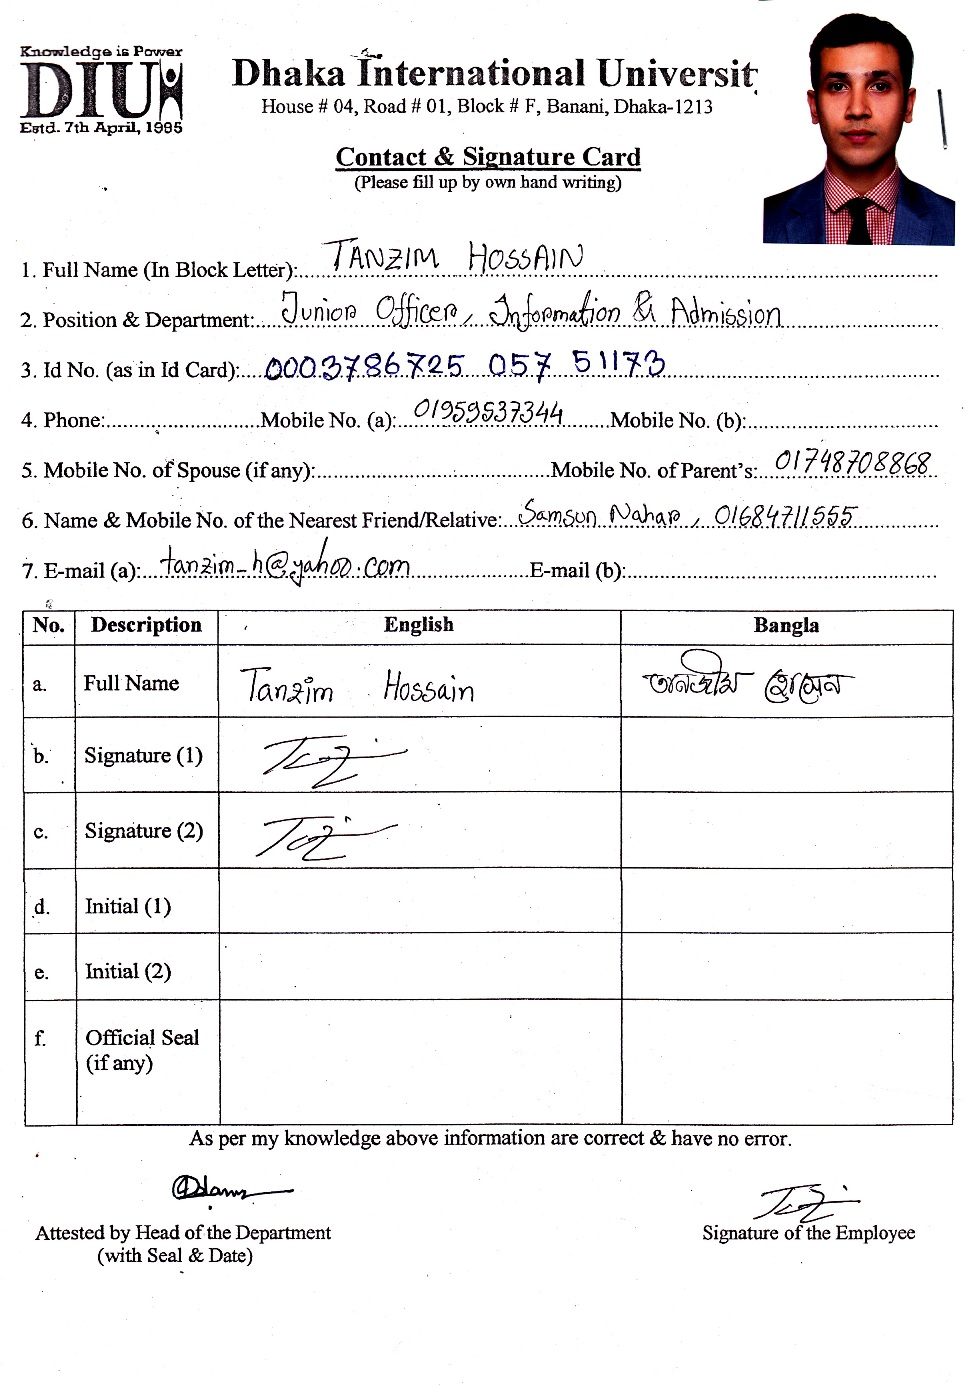 Knowledge is Power
DIU
Estd. 7th April, 1995
Dhaka International Universit
House # 04, Road # 01, Block # F, Banani, Dhaka-1213
Contact & Signature Card
(Please fill up by own hand writing)
1. Full Name (In Block Letter):....TANZIM HOSSAIN....
2. Position & Department:....Junior Officer, Information & Admission....
3. Id No. (as in Id Card):....0003786725 057 51173....
4. Phone:............Mobile No. (a):...01959537344....Mobile No. (b):............
5. Mobile No. of Spouse (if any):............Mobile No. of Parent's:...01748708868...
6. Name & Mobile No. of the Nearest Friend/Relative:...Samsun Nahar, 01684711555....
7. E-mail (a):...tanzim_h@yahoo.com............E-mail (b):............
No. Description English Bangla
a. Full Name Tanzim Hossain তানজীম হোসেন
b. Signature (1)
c. Signature (2)
d. Initial (1)
e. Initial (2)
f. Official Seal
(if any)
As per my knowledge above information are correct & have no error.
Attested by Head of the Department Signature of the Employee
(with Seal & Date)